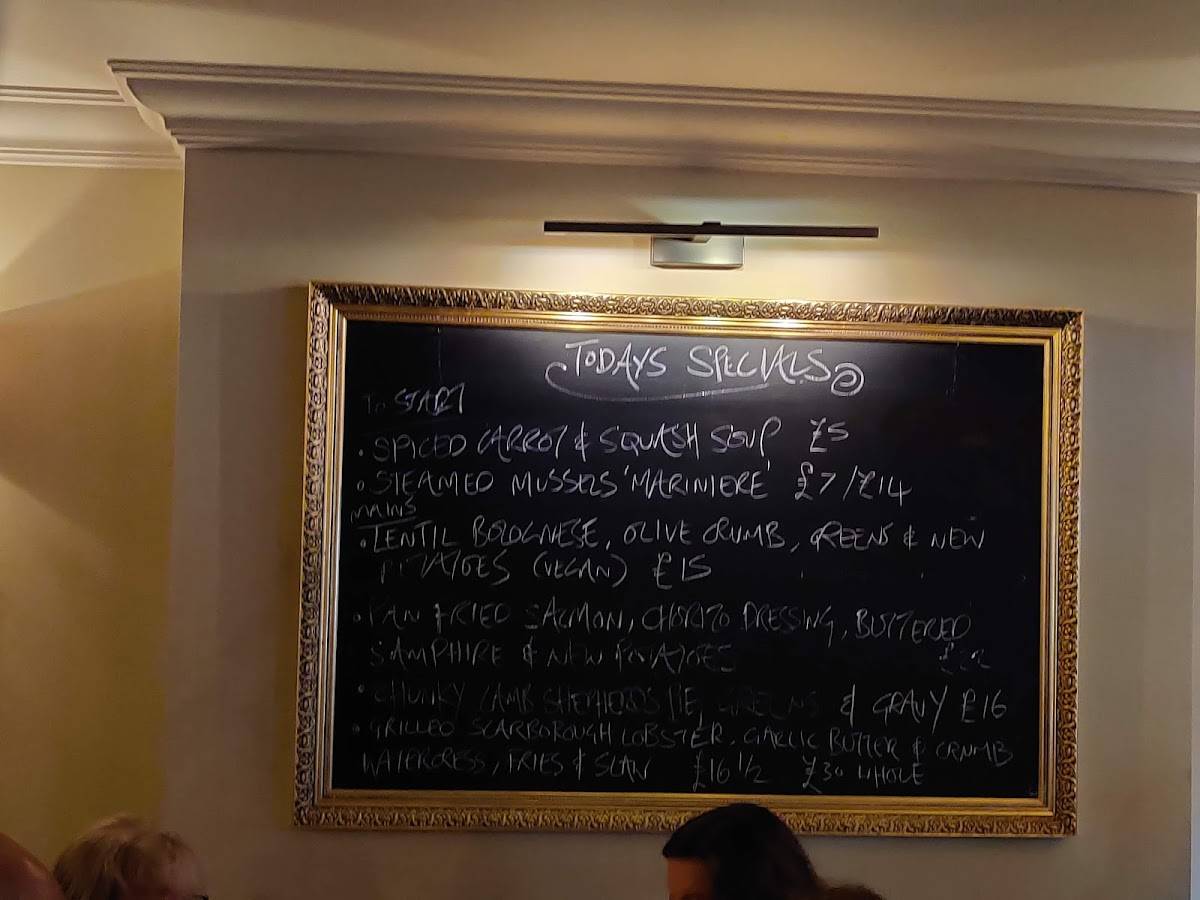 TODAYS SPECIALS
TO START
• SPICED CARROT & SQUASH SOUP £5
• STEAMED MUSSELS 'MARINIERE' £7/£14
MAINS
• LENTIL BOLOGNESE, OLIVE CRUMB, GREENS & NEW
POTATOES (VEGAN) £15
• PAN FRIED SALMON, CHORIZO DRESSING, BUTTERED
SAMPHIRE & NEW POTATOES
• CHUNKY LAMB SHEPHERDS PIE, GREENS & GRAVY £16
• GRILLED SCARBOROUGH LOBSTER, GARLIC BUTTER & CRUMB
WATERCRESS, FRIES & SLAW £16 1/2 £30 WHOLE